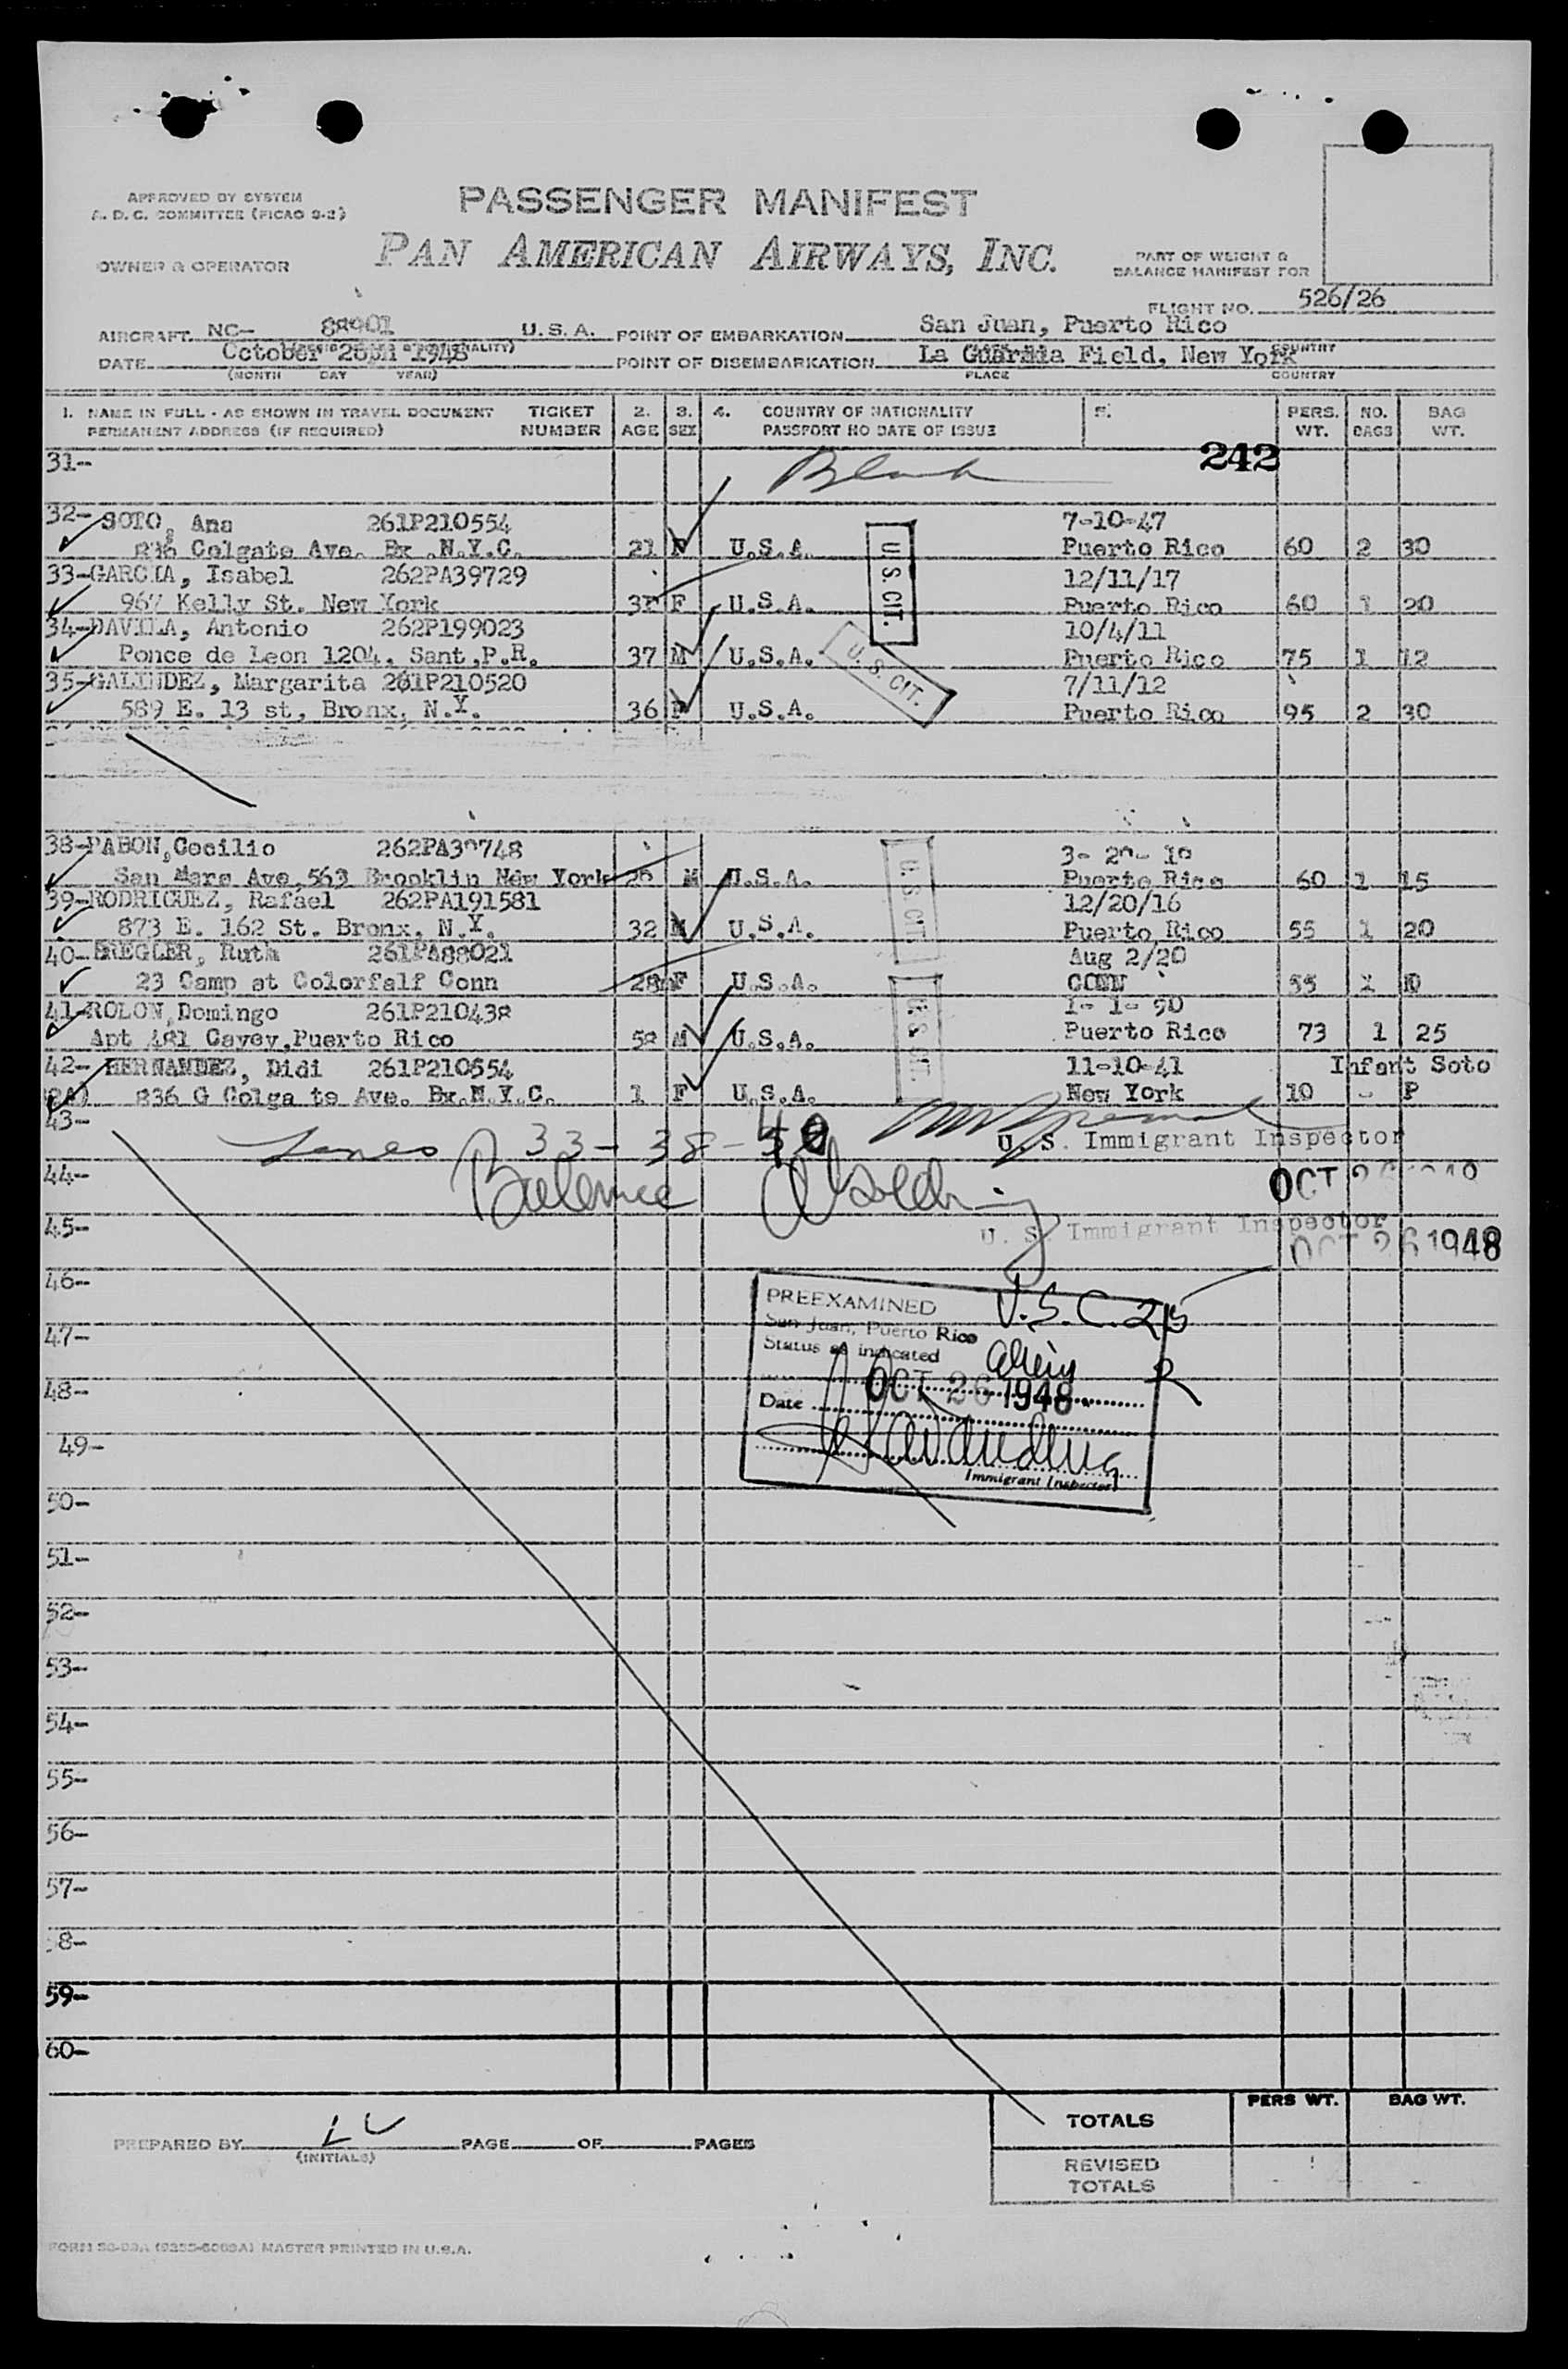 APPROVED BY SYSTEM
A. D. C. COMMITTEE (PICAO 9-2)
PASSENGER MANIFEST
OWNER & OPERATOR
PAN AMERICAN AIRWAYS, INC.
PART OF WEIGHT &
BALANCE MANIFEST FOR
FLIGHT NO. 526/26
AIRCRAFT NC- 88901 U. S. A. POINT OF EMBARKATION San Juan, Puerto Rico
DATE October 26th 1948 POINT OF DISEMBARKATION La Guardia Field, New York
(MONTH DAY YEAR) PLACE COUNTRY
1. NAME IN FULL - AS SHOWN IN TRAVEL DOCUMENT TICKET 2. 3. 4. COUNTRY OF NATIONALITY 5. PERS. NO. BAG
PERMANENT ADDRESS (IF REQUIRED) NUMBER AGE SEX PASSPORT NO DATE OF ISSUE WT. BAGS WT.
31- Blank 242
32- SOTO, Ana 261P210554 7-10-47
836 Colgate Ave. Bx .N.Y.C. 21 F U.S.A. Puerto Rico 60 2 30
33-GARCIA, Isabel 262PA39729 12/11/17
967 Kelly St. New York 31 F U.S.A. Puerto Rico 60 1 20
U.S. CIT.
34-DAVILA, Antonio 262P199023 10/4/11
Ponce de Leon 1204, Sant,P.R. 37 M U.S.A. Puerto Rico 75 1 12
U.S. CIT.
35-GALINDEZ, Margarita 261P210520 7/11/12
589 E. 13 st, Bronx, N.Y. 36 F U.S.A. Puerto Rico 95 2 30
38-PABON,Cecilio 262PA39748
San Mars Ave,563 Brooklin New York M U.S.A. Puerto Rico 60 1 15
39-RODRIGUEZ, Rafael 262PA191581 12/20/16
873 E. 162 St. Bronx, N.Y. 32 M U.S.A. Puerto Rico 55 1 20
U.S. CIT.
40- Ruth 261PA88021 Aug 2/20
23 Camp st Colorfalf Conn 28 F U.S.A. CONN 55
41-ROLON,Domingo 261P210438 1- 1- 90
Apt 481 Cayey,Puerto Rico 58 M U.S.A. Puerto Rico 73 1 25
U.S. CIT.
42- HERNANDEZ, Didi 261P210554 11-10-41 Infant Soto
836 G Colga te Ave. Bx.N.Y.C. 1 F U.S.A. New York 10 - P
43- Lanes 33 - 38 - 40 U. S. Immigrant Inspector
44- Balance OCT 26 1948
45- U. S. Immigrant Inspector
OCT 26 1948
46-
PREEXAMINED U.S.C. 25
San Juan, Puerto Rico
47-
Status as indicated Aliens
48- OCT 26 1948
Date
49-
Immigrant Inspector
50-
51-
52-
53-
54-
55-
56-
57-
58-
59-
60-
PERS WT. BAG WT.
TOTALS
PREPARED BY PAGE OF PAGES
(INITIALS)
REVISED
TOTALS
MASTER PRINTED IN U.S.A.